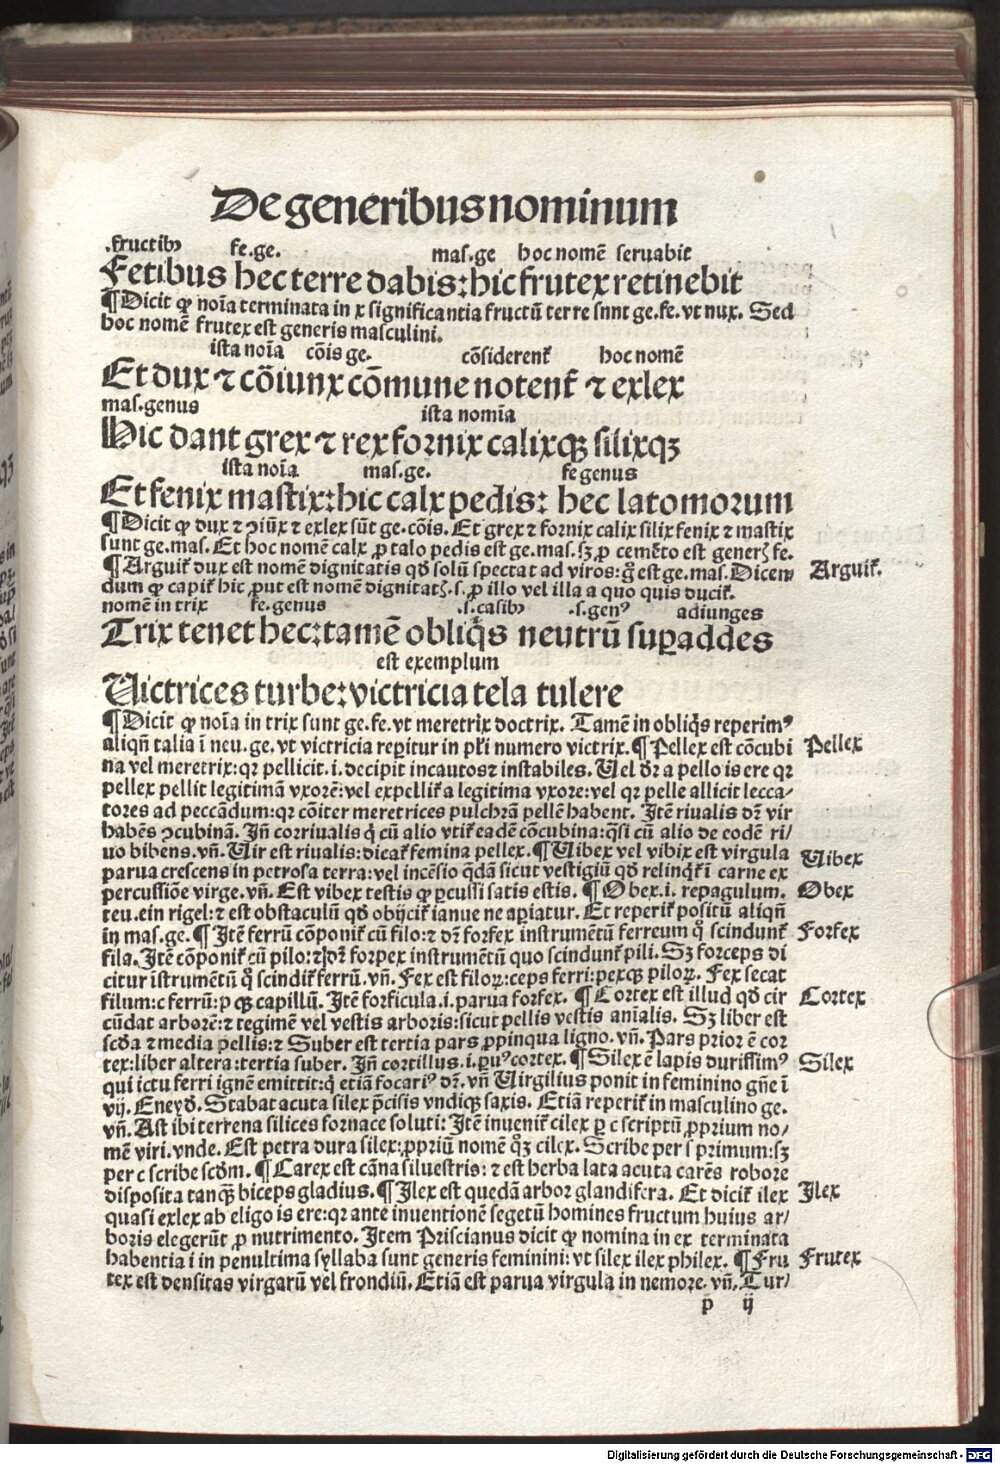 De generibus nominum
.fructibꝰ fe.ge. mas.ge hoc nomẽ seruabit
Fetibus hec terre dabis: hic frutex retinebit
¶ Dicit ꝙ noĩa terminata in x significantia fructũ terre snnt ge.fe. vt nux. Sed
hoc nomẽ frutex est generis masculini.
ista noĩa cõis ge. cõsiderent᷑ hoc nomẽ
Et dux ⁊ cõiunx cõmune notent᷑ ⁊ exlex
mas.genus ista nomĩa
Hic dant grex ⁊ rex fornix calixqꝫ silixqꝫ
ista noĩa mas.ge. fe genus
Et fenix mastix: hic calx pedis: hec latomorum
¶ Dicit ꝙ dux ⁊ ꝯiũx ⁊ exlex sũt ge.cõis. Et grex ⁊ fornix calix silix fenix ⁊ mastix
sunt ge.mas. Et hoc nomẽ calx ꝓ talo pedis est ge.mas. sꝫ ꝓ cemẽto est generꝭ fe.
¶ Arguit᷑ dux est nomẽ dignitatis qđ solũ spectat ad viros: g̊ est ge.mas. Dicen⸗ Arguit᷑.
dum ꝙ capit᷑ hic ꝓut est nomẽ dignitatꝭ.s. ꝓ illo vel illa a quo quis ducit᷑.
nomẽ in trix fe.genus .s.casibꝰ .s.genꝰ adiunges
Trix tenet hec: tamẽ obliq̃s neutrũ suꝑaddes
est exemplum
Uictrices turbe: victricia tela tulere
¶ Dicit ꝙ noĩa in trix sunt ge.fe. vt meretrix doctrix. Tamẽ in obliq̃s reperimꝰ
aliqñ talia ĩ neu.ge. vt victricia reꝑitur in pl̃i numero victrix. ¶ Pellex est cõcubi Pellex
na vel meretrix: qr pellicit .i. decipit incautos ⁊ instabiles. Uel dr̃ a pello is ere qr
pellex pellit legitimã vxorẽ: vel expellit᷑ a legitima vxore: vel qr pelle allicit lecca⸗
tores ad peccãdum: qr cõiter meretrices pulchrã pellẽ habent. Itẽ riualis dr̃ vir
habẽs ꝯcubinã. Iñ corriualis q̇ cũ alio vtit᷑ eadẽ cõcubina: q̃si cũ alio de eodẽ ri⸗
uo bibens. vñ. Uir est riualis: dicat᷑ femina pellex. ¶ Uibex vel vibix est virgula Uibex
parua crescens in petrosa terra: vel incẽsio q̃dã sicut vestigiũ qđ relinqt᷑ ĩ carne ex
percussiõe virge. vñ. Est vibex testis ꝙ ꝑcussi satis estis. ¶ Obex .i. repagulum. Obex
teu. ein rigel: ⁊ est obstaculũ qđ obijcit᷑ ianue ne aꝑiatur. Et reperit᷑ positũ aliqñ
in mas.ge. ¶ Itẽ ferrũ cõponit᷑ cũ filo: ⁊ dr̃ forfex instrumẽtũ ferreum q̊ scindunt᷑ Forfex
fila. Itẽ cõponit᷑ cũ pilo: ⁊ dr̃ forpex instrumẽtũ quo scindunt᷑ pili. Sꝫ forceps di
citur istrumẽtũ q̊ scindit᷑ ferrũ. vñ. Fex est filoꝝ: ceps ferri: pexqꝫ piloꝝ. Fex secat
filum: c ferrũ: p qꝫ capillũ. Itẽ forficula .i. parua forfex. ¶ Cortex est illud qđ cir Cortex
cũdat arborẽ: ⁊ tegimẽ vel vestis arboris: sicut pellis vestis anĩalis. Sꝫ liber est
scđa ⁊ media pellis: ⁊ Suber est tertia pars ꝓpinqua ligno. vñ. Pars prior ẽ cor
tex: liber altera: tertia suber. Iñ cortillus .i. ꝑuꝰ cortex. ¶ Silex ẽ lapis durissimꝰ Silex
qui ictu ferri ignẽ emittit: q̇ etiã focariꝰ dr̃. vñ Uirgilius ponit in feminino gñe ĩ
vij. Eneyđ. Stabat acuta silex p̃cisis vndiqꝫ saxis. Etiã reperit᷑ in masculino ge.
vñ. Ast ibi terrena silices fornace soluti: Itẽ inuenit᷑ cilex ꝑ c scriptũ ꝓprium no⸗
mẽ viri. vnde. Est petra dura silex: ꝓpriũ nomẽ qꝫ cilex. Scribe per s primum: sꝫ
per c scribe scđm. ¶ Carex est cãna siluestris: ⁊ est herba lata acuta carẽs robore
disposita tanqꝫ biceps gladius. ¶ Ilex est quedã arbor glandifera. Et dicit᷑ ilex Ilex
quasi exlex ab eligo is ere: qr ante inuentionẽ segetũ homines fructum huius ar⸗
boris elegerũt ꝓ nutrimento. Item Priscianus dicit ꝙ nomina in ex terminata
habentia i in penultima syllaba sunt generis feminini: vt silex ilex philex. ¶ Fru Frutex
tex est densitas virgarũ vel frondiũ. Etiã est parua virgula in nemore. vñ. Tur⸗
p ij
Digitalisierung gefördert durch die Deutsche Forschungsgemeinschaft - DFG